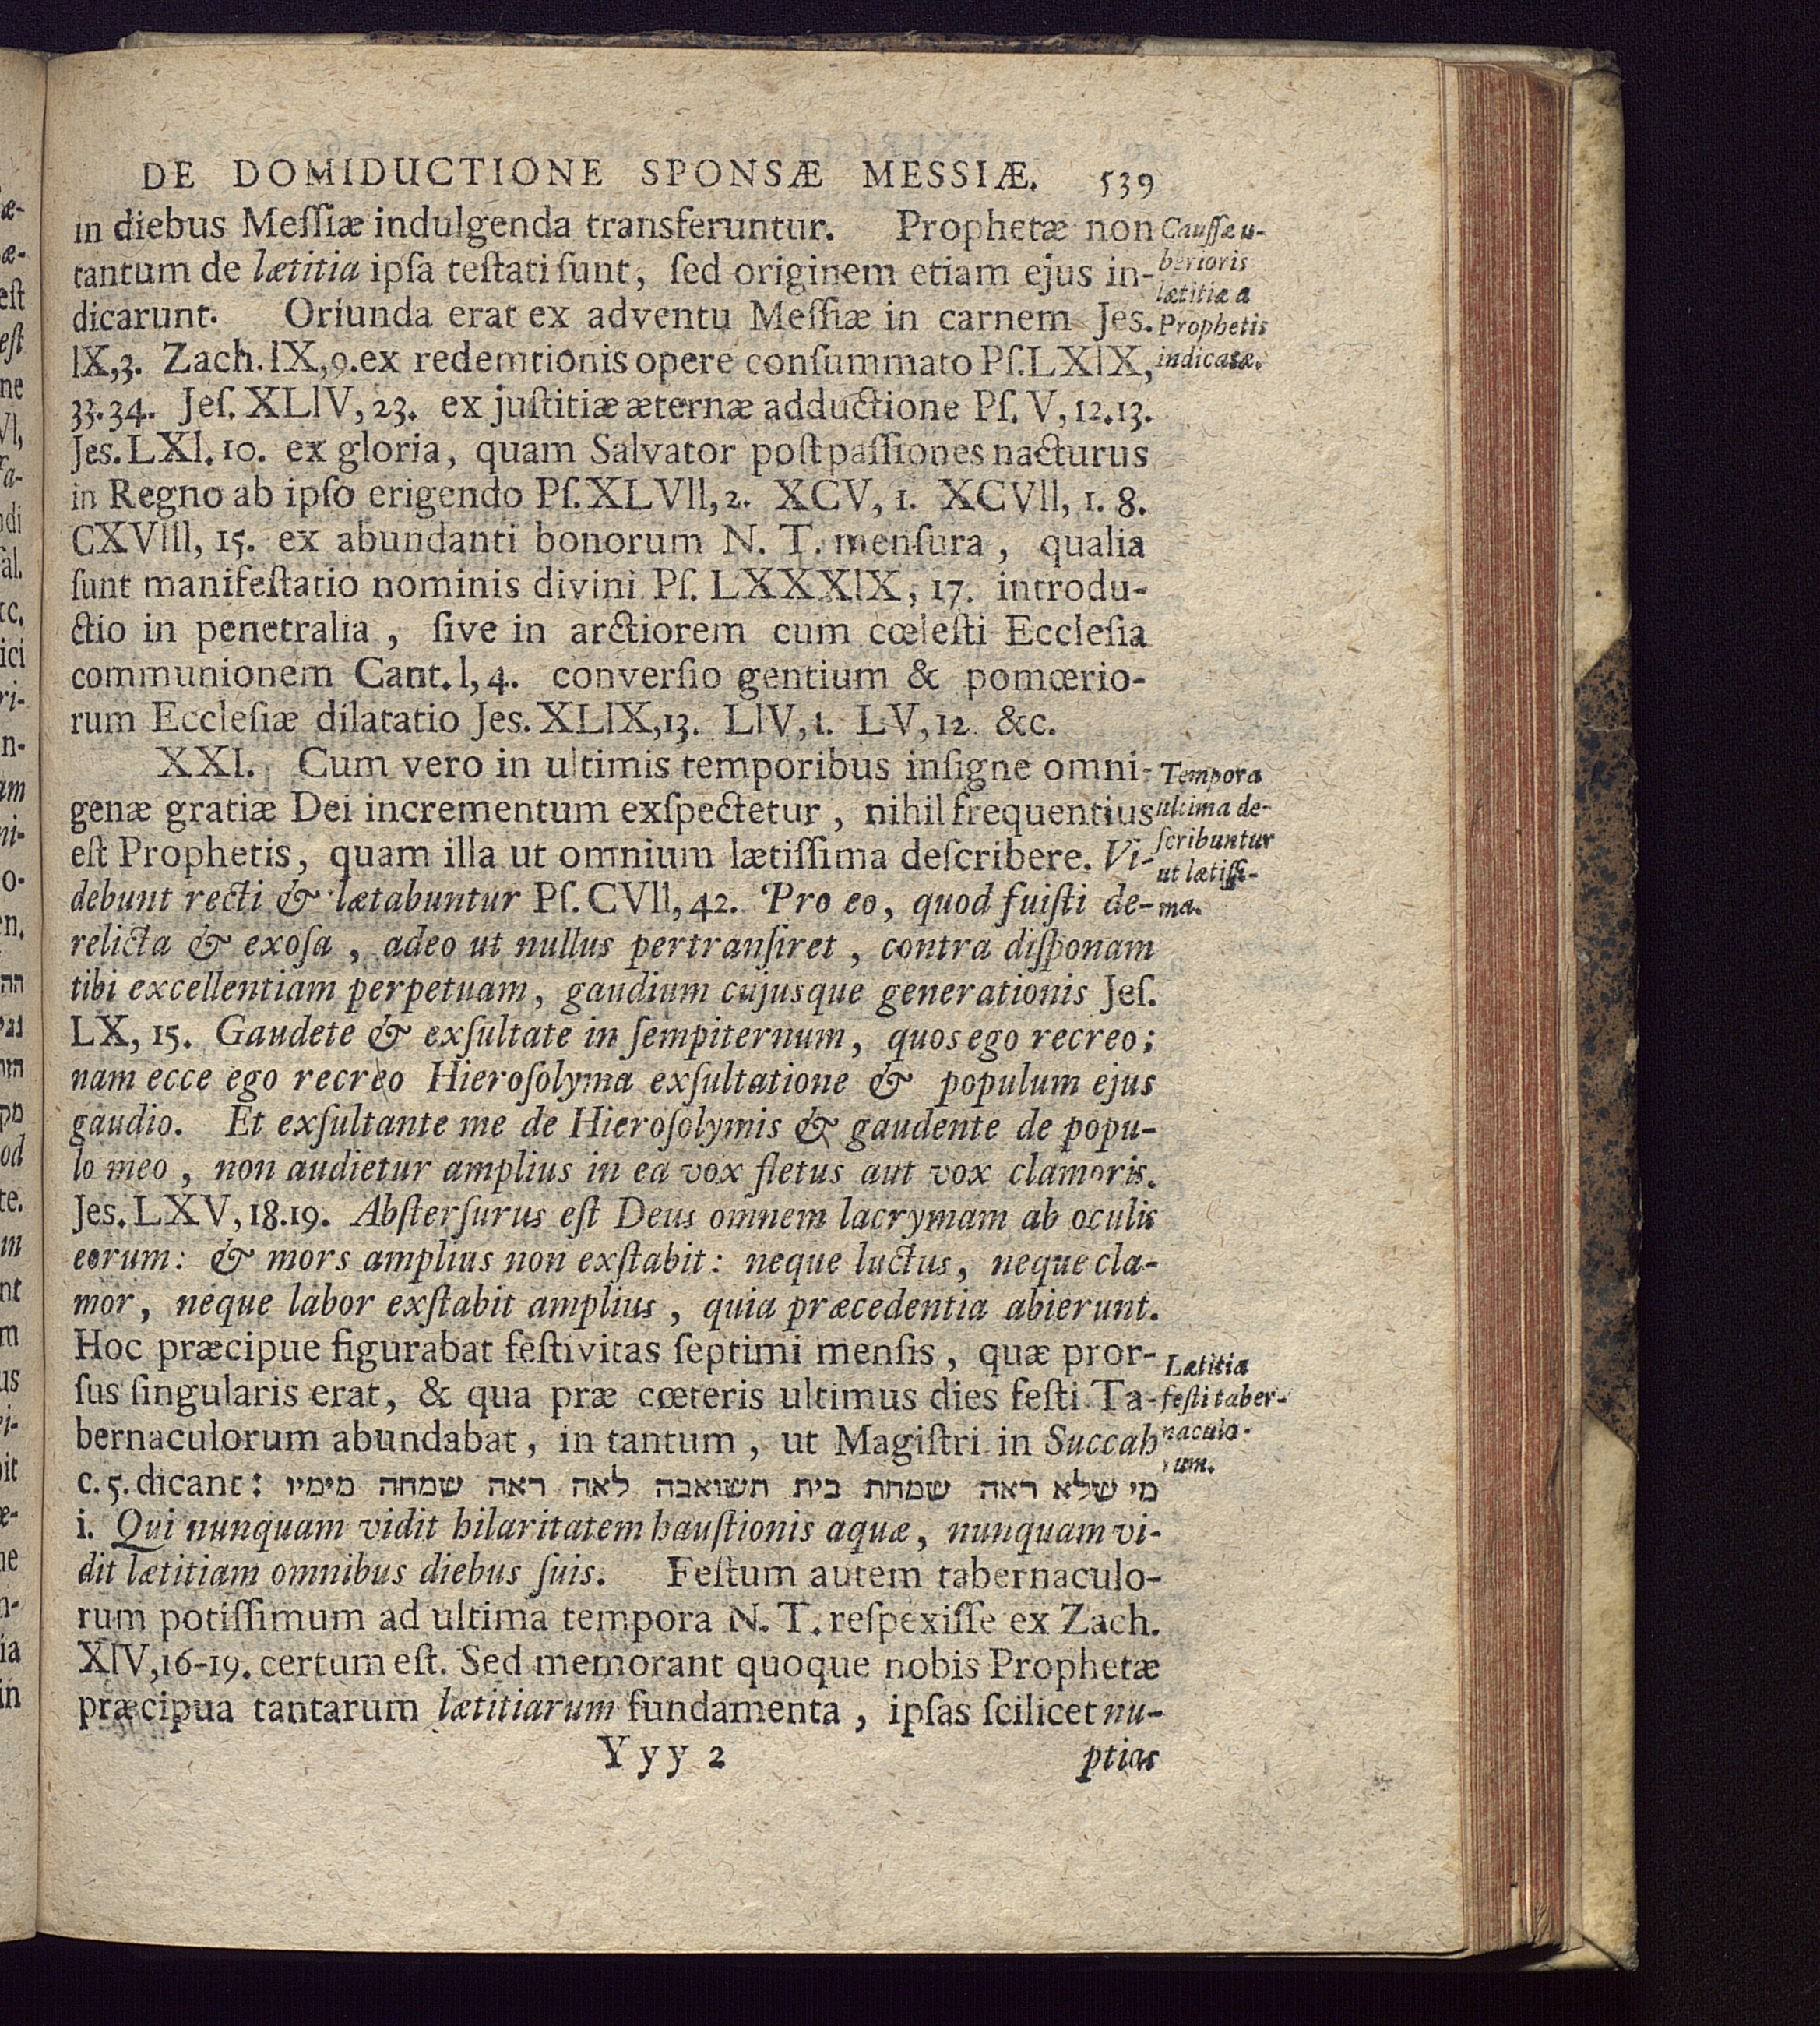 DE DOMIDUCTIONE SPONSÆ MESSIÆ. 539
in diebus Meſſiæ indulgenda transferuntur. Prophetæ non
tantum de lætitia ipſa teſtati ſunt, ſed originem etiam ejus in-
dicarunt. Oriunda erat ex adventu Meſſiæ in carnem Jes.
IX,3. Zach. IX,9. ex redemtionis opere conſummato Pſ. LXIX,
33.34. Jeſ. XLIV, 23. ex juſtitiæ æternæ adductione Pſ. V, 12.13.
Jes. LXI. 10. ex gloria, quam Salvator poſt paſſiones nacturus
in Regno ab ipſo erigendo Pſ. XLVII, 2. XCV, 1. XCVII, 1. 8.
CXVIII, 15. ex abundanti bonorum N. T. menſura, qualia
ſunt manifeſtatio nominis divini Pſ. LXXXIX, 17. introdu-
ctio in penetralia, ſive in arctiorem cum cœleſti Eccleſia
communionem Cant. I, 4. converſio gentium & pomœrio-
rum Eccleſiæ dilatatio Jes. XLIX,13. LIV, 1. LV, 12 &c.
Cauſſæ u-
berioris
lætitiæ a
Prophetis
indicatæ.
XXI. Cum vero in ultimis temporibus inſigne omni-
genæ gratiæ Dei incrementum exſpectetur, nihil frequentius
eſt Prophetis, quam illa ut omnium lætiſſima deſcribere. Vi-
debunt recti & lætabuntur Pſ. CVII, 42. Pro eo, quod fuiſti de-
relicta & exoſa, adeo ut nullus pertranſiret, contra diſponam
tibi excellentiam perpetuam, gaudium cujusque generationis Jeſ.
LX, 15. Gaudete & exſultate in ſempiternum, quos ego recreo;
nam ecce ego recreo Hieroſolyma exſultatione & populum ejus
gaudio. Et exſultante me de Hieroſolymis & gaudente de popu-
lo meo, non audietur amplius in ea vox fletus aut vox clamoris.
Jes. LXV, 18.19. Abſterſurus eſt Deus omnem lacrymam ab oculis
eorum: & mors amplius non exſtabit: neque luctus, neque cla-
mor, neque labor exſtabit amplius, quia præcedentia abierunt.
Tempora
ultima de-
ſcribuntur
ut lætiſſi-
ma.
Hoc præcipue figurabat feſtivitas ſeptimi menſis, quæ pror-
ſus ſingularis erat, & qua præ cœteris ultimus dies feſti Ta-
bernaculorum abundabat, in tantum, ut Magiſtri in Succah
c. 5. dicant: מי שלא ראה שמחת בית תשואבה לאה ראה שמחה מימיו
i. Qui nunquam vidit hilaritatem hauſtionis aquæ, nunquam vi-
dit lætitiam omnibus diebus ſuis. Feſtum autem tabernaculo-
rum potiſſimum ad ultima tempora N. T. reſpexiſſe ex Zach.
XIV,16-19. certum eſt. Sed memorant quoque nobis Prophetæ
præcipua tantarum lætitiarum fundamenta, ipſas ſcilicet nu-
Lætitia
feſti taber-
naculo-
rum.
Yyy 2
ptias